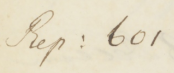 Rep: 601